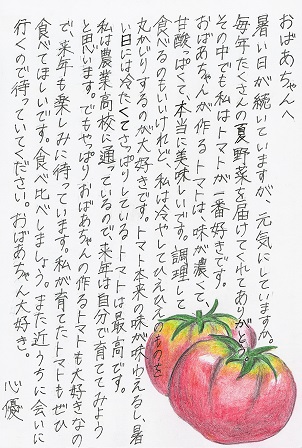 おばあちゃんへ
暑い日が続いていますが、元気にしていますか。
毎年たくさんの夏野菜を届けてくれてありがとう。
その中でも私はトマトが一番好きです。
おばあちゃんが作るトマトは、味が濃くて、
甘酸っぱくて、本当に美味しいです。調理して
食べるのもいいけれど、私は冷やしてひえひえのものを
丸かじりするのが大好きです。トマト本来の味が味わえるし、暑
い日には冷たくてさっぱりしているトマトは最高です。
私は農業高校に通っているので来年は自分で育ててみよう
と思います。でもやっぱりおばあちゃんの作るトマトも大好きなの
で、来年も楽しみに待っています。私が育てたトマトもぜひ
食べてほしいです。食べ比べしましょう。また近うちに会いに
行くので待っていてください。おばあちゃん大好き。
心優